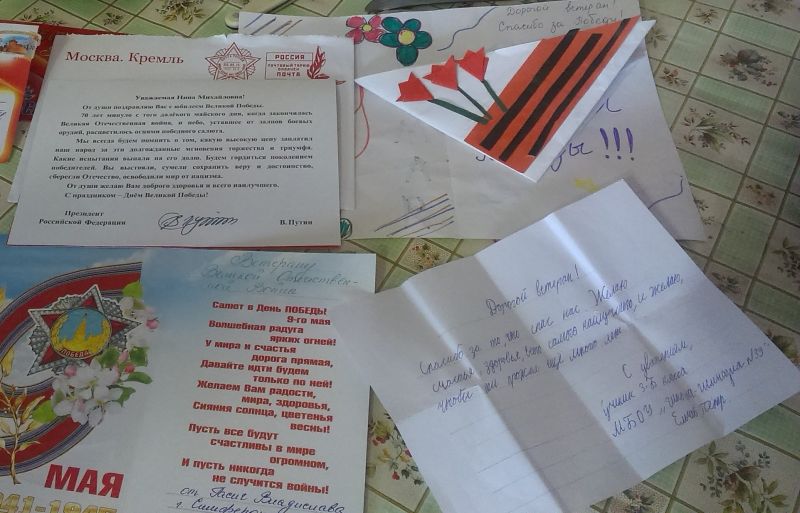 Москва. Кремль
РОССИЯ
ПОЧТА
Уважаемая Нина Михайловна!
От души поздравляю Вас с юбилеем Великой Победы.
70 лет минуло с того далёкого майского дня, когда закончилась
Великая Отечественная война, и небо, уставшее от залпов боевых
орудий, расцветилось огнями победного салюта.
Мы всегда будем помнить о том, какую высокую цену заплатил
наш народ за эти долгожданные мгновения торжества и триумфа.
Какие испытания выпали на его долю. Будем гордиться поколением
победителей. Вы выстояли, сумели сохранить веру и достоинство,
сберегли Отечество, освободили мир от нацизма.
От души желаю Вам доброго здоровья и всего наилучшего.
С праздником – Днём Великой Победы!
Президент
Российской Федерации
В.Путин
Дорогой ветеран!
Спасибо за Победу!
!!!
Ветерану
Великой Отечествен-
ной Войны
Салют в День ПОБЕДЫ!
9-го мая
Волшебная радуга
ярких огней!
У мира и счастья
дорога прямая,
Давайте идти будем
только по ней!
Желаем Вам радости,
мира, здоровья,
Сияния солнца, цветенья
весны!
Пусть все будут
счастливы в мире
огромном,
И пусть никогда
не случится войны!
от Владислава
г. Симферо
ПОБЕДА
МАЯ
941-1945
Дорогой ветеран!
Спасибо за то, что спас нас. Желаю
счастья, здоровья, всего самого наилучшего, и желаю,
чтобы ты прожил ещё много лет
С уважением,
ученик 3-Б класса
МБОУ "Школа-гимназия №39"